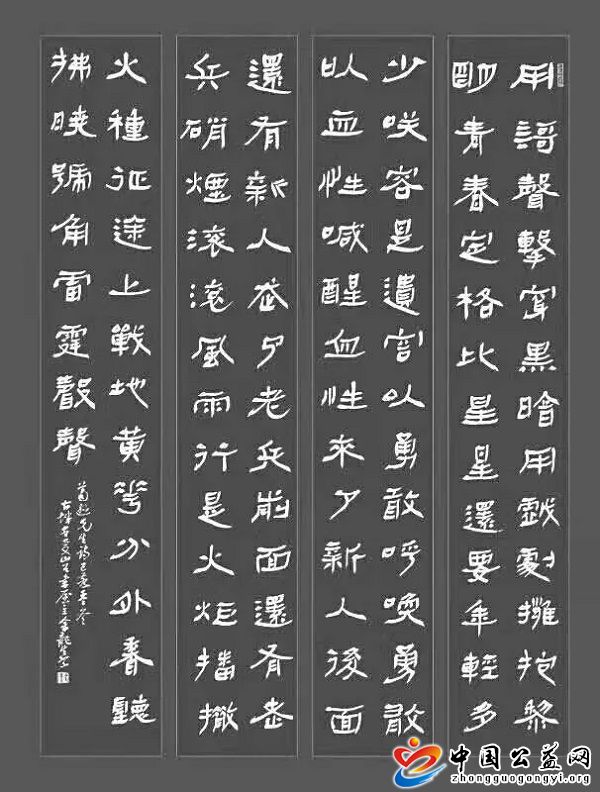 用謌聲擊穿黑暗用戲劇擁抱黎
明青春定格比星星還要年輕多
少咲容是遺言以勇敢呼喚勇敢
以血性喊醒血性來了新人後面
還有新人老了老兵前面還有老
兵硝煙滾滾風雨行是火炬播撒
火種征途上戰地黃花分外香聽
拂曉號角雷霆鼓聲
中国公益网
zhongguogongyi.org